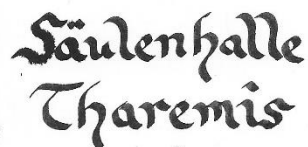 Säulenhalle
Tharemis